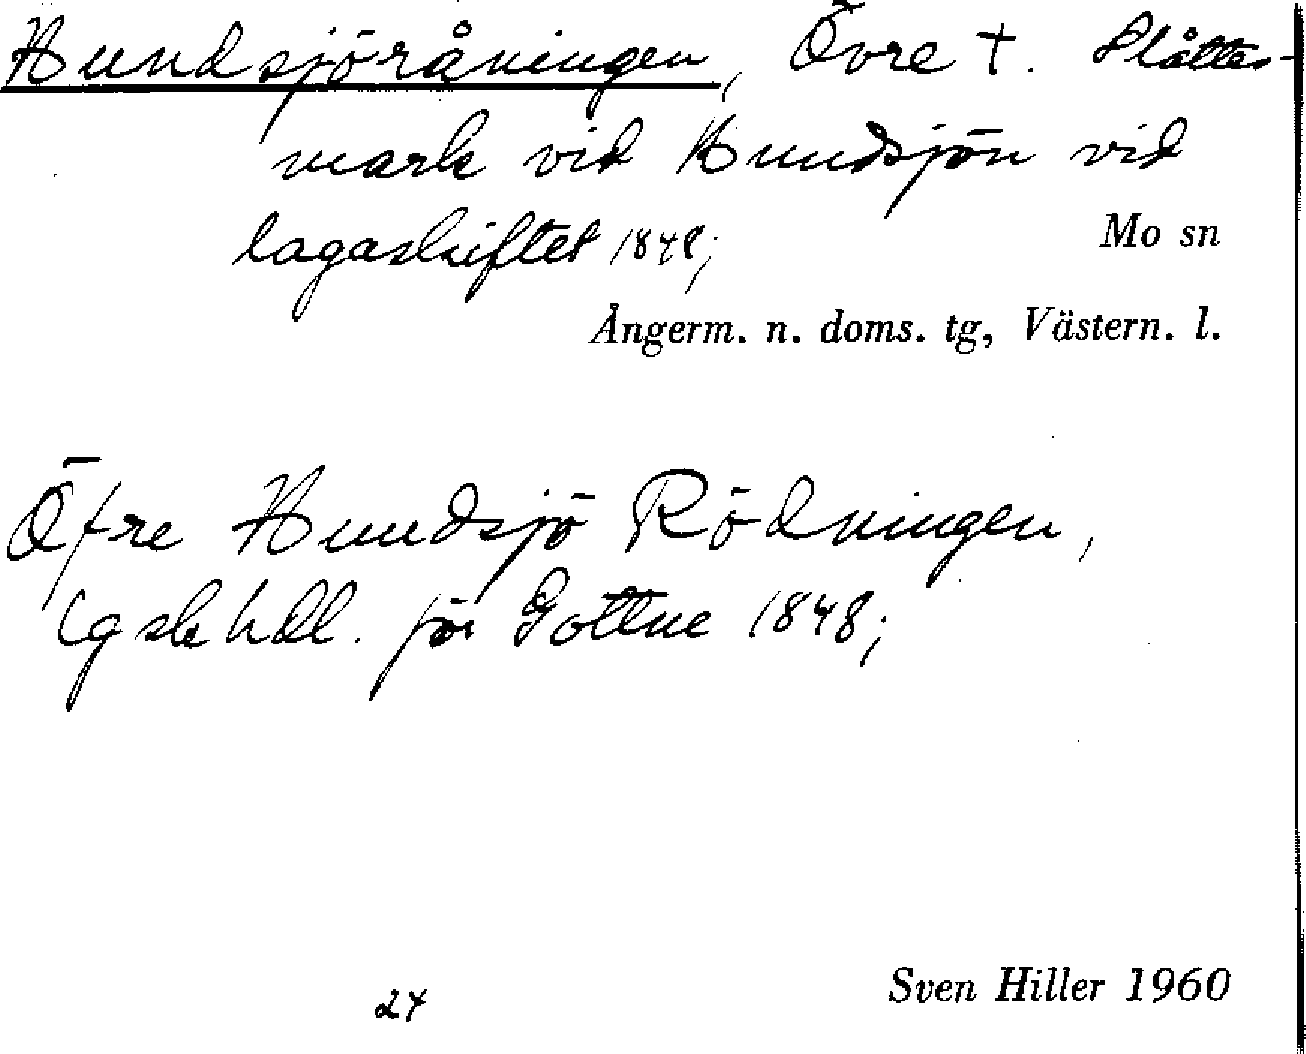 Hundsjöråningen, Övre †. Slåttes-
mark vid Hundsjön vid
lagaskiftet 1848;
Mo sn
Ångerm. n. doms. tg, Västern. l.
Öfre Hundsjö Rödningen,
lgsk hdl. för Gottne 1848;
24
Sven Hiller 1960